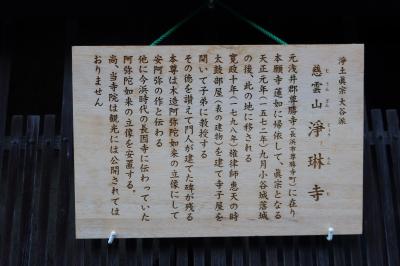 浄土真宗 大谷派
じうんざん じょうりんじ
慈雲山 淨琳寺
元浅井郡尊勝寺(長浜市尊勝寺町)に在り
本願寺 蓮如に帰依して、真宗となる
天正元年(一五七三)九月小谷城落城
の後、此の地に移される
寛政十年(一七九八)権律師恵天の時
太鼓部屋(表の建物)を建て寺子屋を
開いて子弟に教授する
その徳を讃えて門人が建てた碑が残る
本尊は木造阿弥陀如来の立像にして
安阿弥の作と伝わる
他に今浜時代の長因寺に伝わっていた
阿弥陀如来の立像を安置する。
尚、当寺院は観光には公開されては
おりません